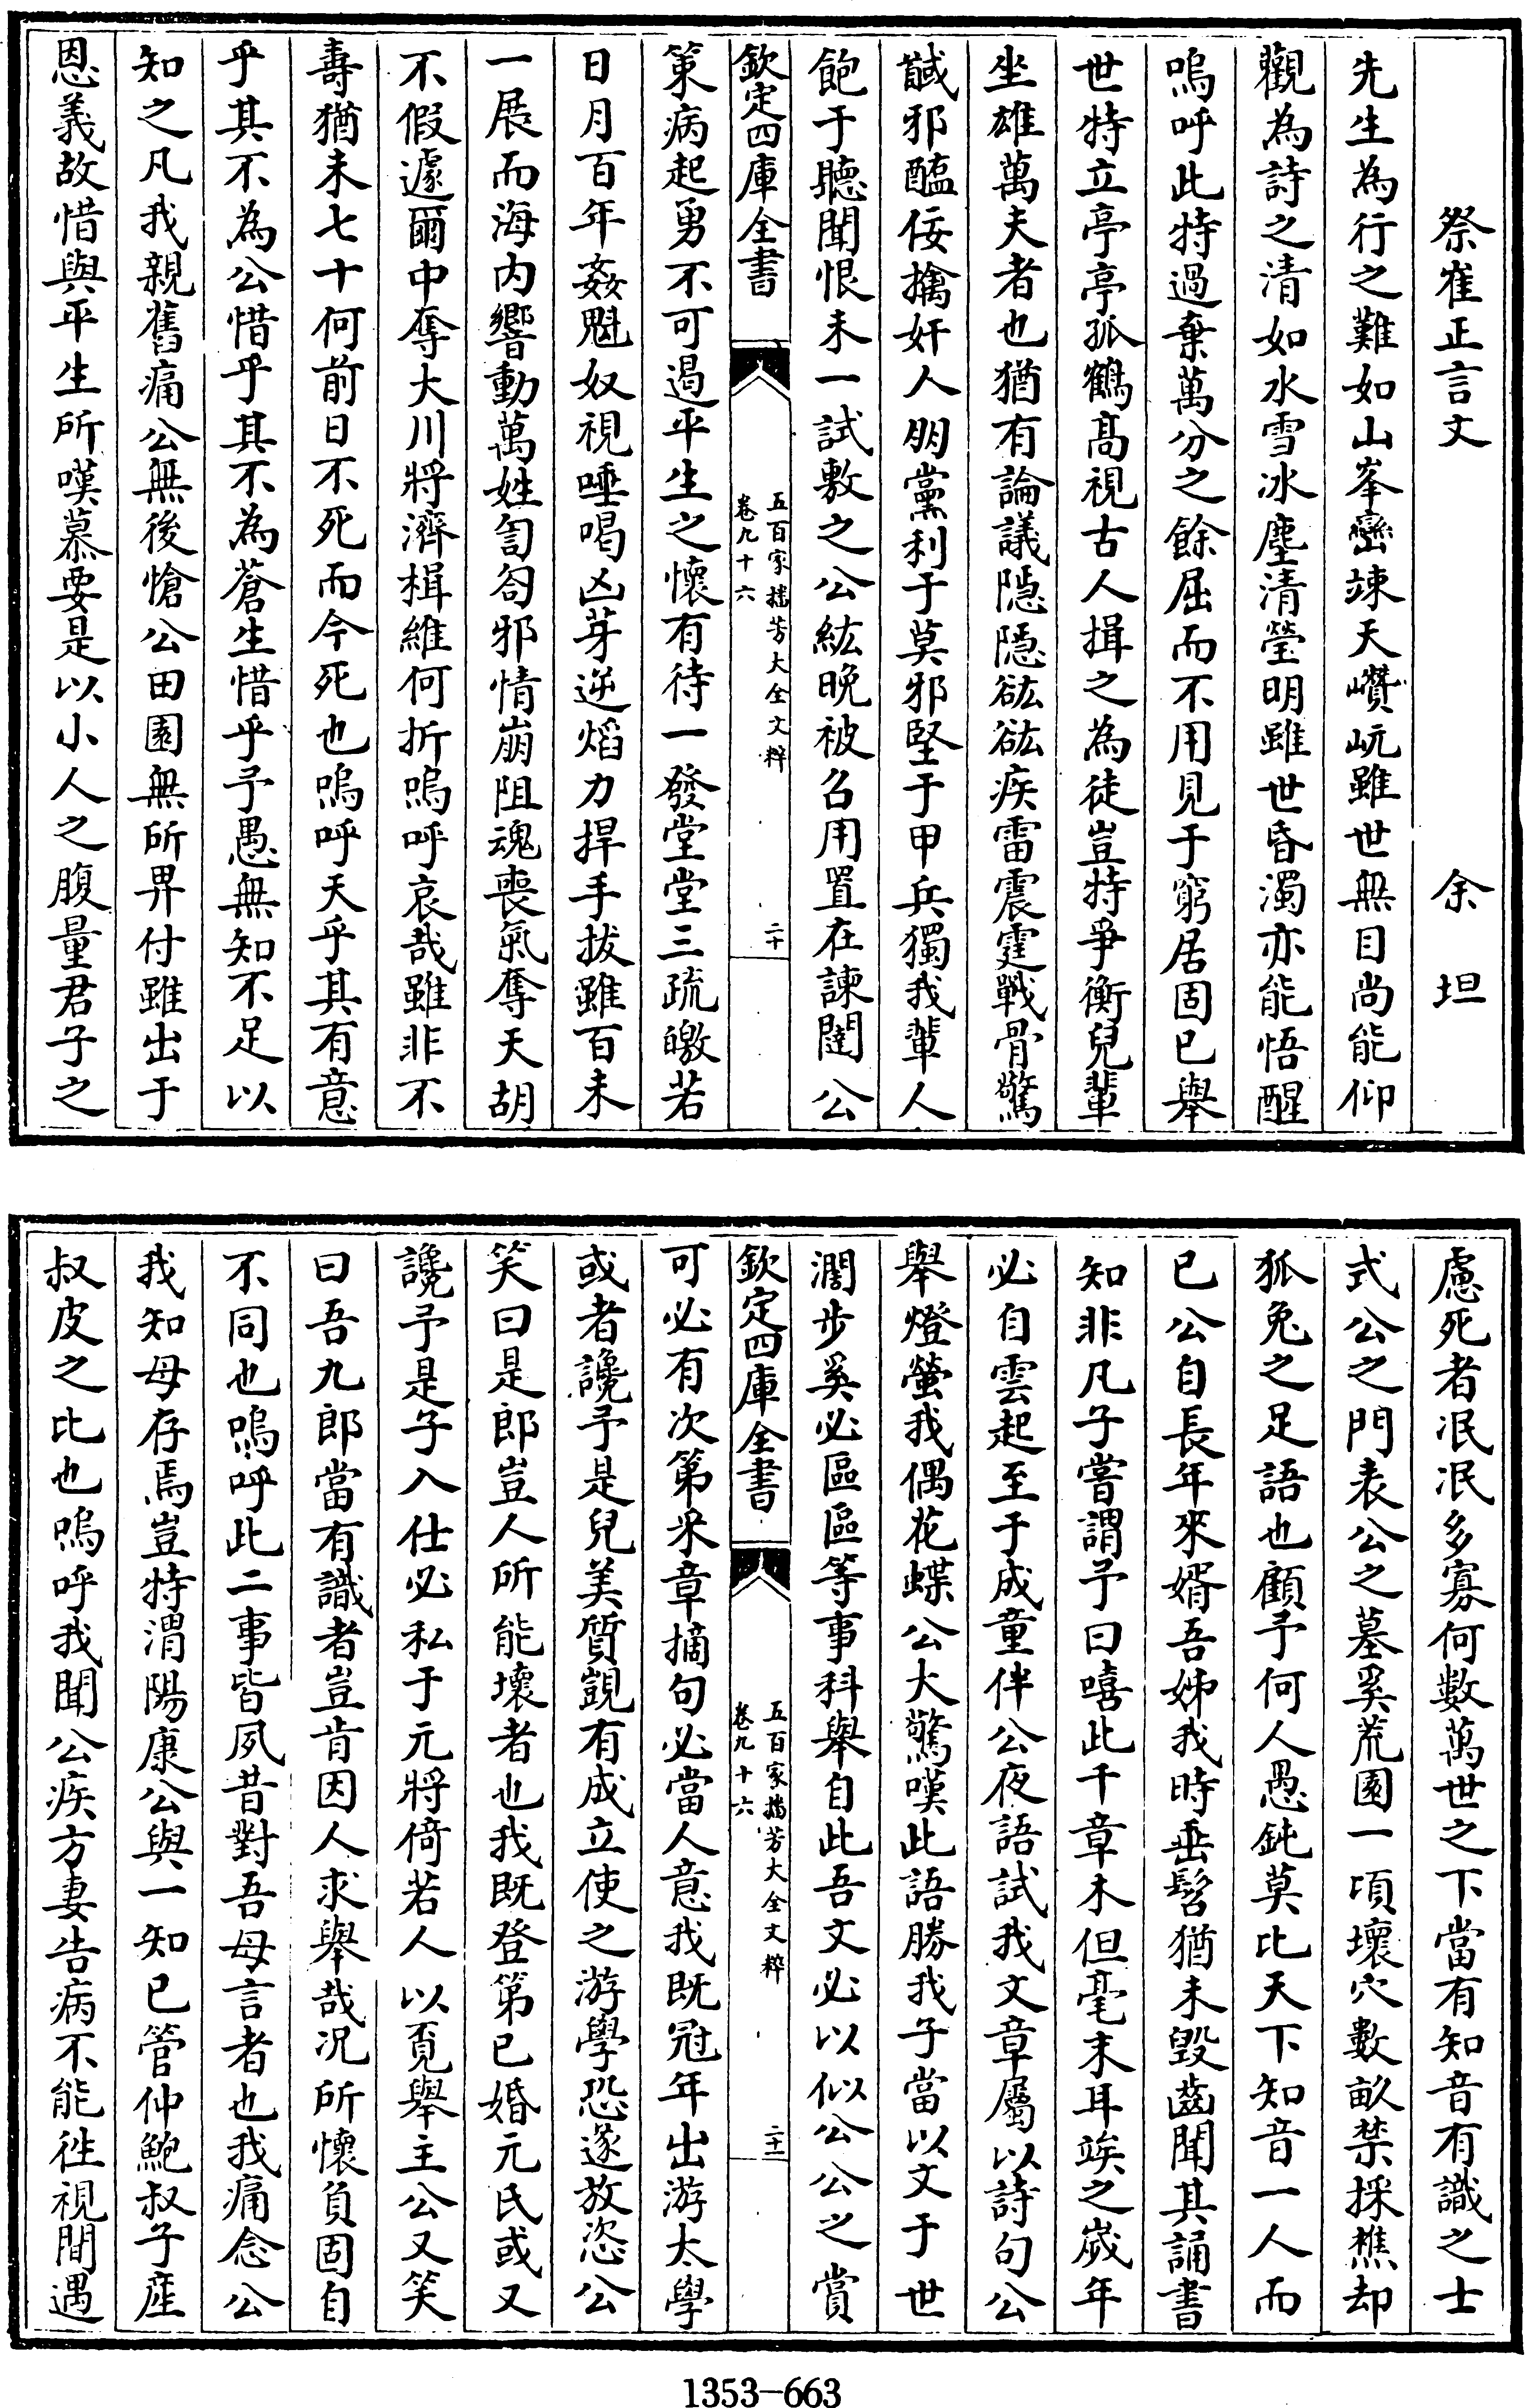 祭崔正言文　余坦
先生為行之難如山峯巒竦天巑岏雖世無目尚能仰
觀為詩之清如水雪冰塵清瑩明雖世昏濁亦能悟醒
嗚呼此特過棄萬分之餘屈而不用見于窮居固已舉
世特立亭亭孤鶴髙視古人揖之為徒豈特爭衡兒輩
坐雄萬夫者也猶有論議隠隠谹谹疾雷震霆戰骨驚
馘邪醢佞擒奸人朋黨利于莫邪堅于甲兵獨我輩人
飽于聽聞恨未一試敷之公紘晚被召用置在諫闥公
欽定四庫全書
五百家播芳大全文粹
卷九十六
二十
策病起勇不可遏平生之懷有待一發堂堂三疏皦若
日月百年姦魁奴視唾喝凶芽逆焰力捍手拔雖百未
一展而海内響動萬姓訇訇邪情崩阻魂喪氣奪天胡
不假遽爾中奪大川將濟楫維何折嗚呼哀哉雖非不
壽猶未七十何前日不死而今死也嗚呼天乎其有意
乎其不為公惜乎其不為蒼生惜乎予愚無知不足以
知之凡我親舊痛公無後愴公田園無所畀付雖出于
恩義故惜與平生所嘆慕要是以小人之腹量君子之
慮死者泯泯多寡何數萬世之下當有知音有識之士
式公之門表公之墓奚荒園一頃壞穴數畝禁採樵却
狐兔之足語也顧予何人愚鈍莫比天下知音一人而
已公自長年來婿吾姊我時垂髫猶未毀齒聞其誦書
知非凡子嘗謂予曰嘻此千章木但毫末耳竢之歲年
必自雲起至于成童伴公夜語試我文章屬以詩句公
舉燈螢我偶花蝶公大驚嘆此語勝我子當以文于世
濶步奚必區區等事科舉自此吾文必以似公公之賞
欽定四庫全書
五百家播芳大全文粹
卷九十六
二十一
可必有次第米章摘句必當人意我既冠年出游太學
或者讒予是兒美質覬有成立使之游學恐遂放恣公
笑曰是郎豈人所能壞者也我既登第已婚元氏或又
讒予是子入仕必私于元將倚若人以覓舉主公又笑
曰吾九郎當有識者豈肯因人求舉哉况所懷負固自
不同也嗚呼此二事皆夙昔對吾母言者也我痛念公
我知母存焉豈特渭陽康公與一知已管仲鮑叔子産
叔皮之比也嗚呼我聞公疾方妻告病不能徃視間遇
1353-663